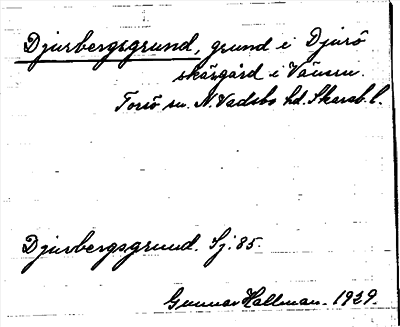 Djurbergsgrund, grund i Djurö
skärgård i Vänern.
Torsö sn. N. Vadsbo hd. Skarab. l.
Djurbergsgrund. Sj. 85.
Gunnar Hallman. 1939.